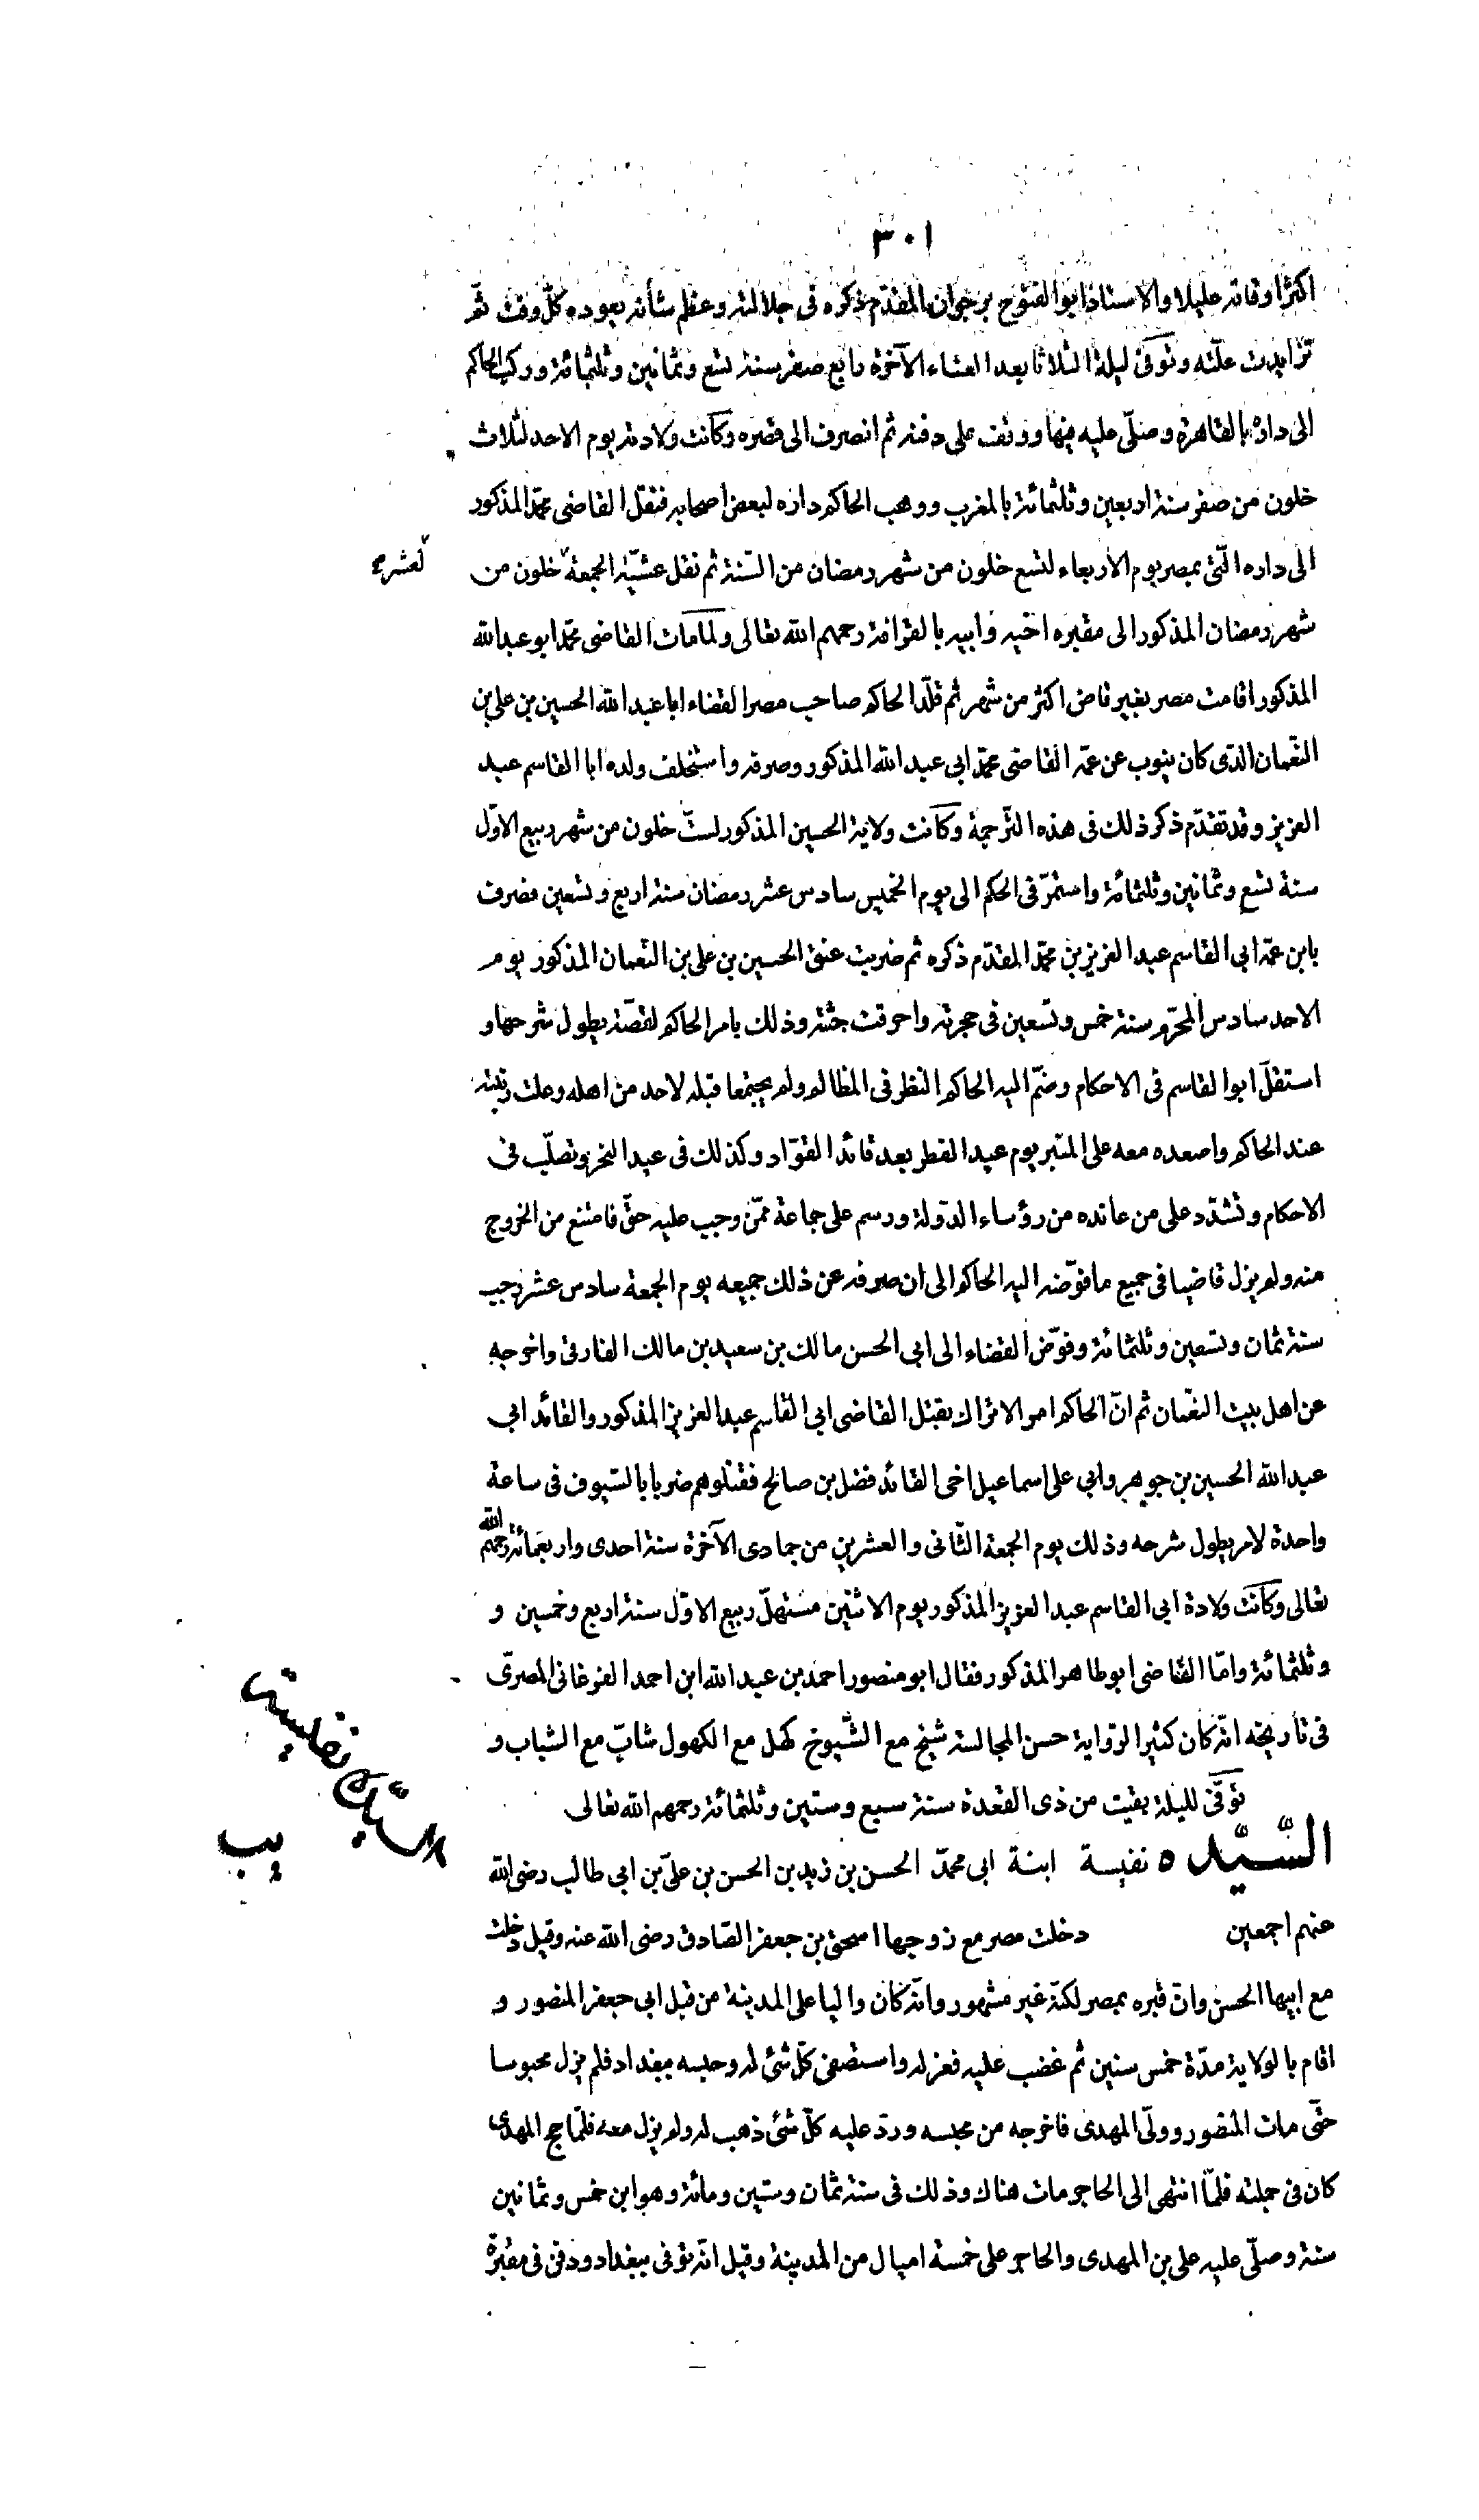 ٣٠١
اكثر اوقاته عليلا والاستاذ ابو الفتوح برجوان المقدّم ذكره فى جلالته وعظم شأنه يعوده كلّ وقت ثمّ
تزايدت علّته وتوفى ليلة الثلاثا بعد العشاء الآخرة رابع صفر سنة تسع وثمانين وثلثمائة وركب الحاكم
الى داره بالقاهرة وصلّى عليه فيها ووقف على دفنه ثم انصرف الى قصره وكانت ولادته يوم الاحد لثلاث
خلون من صفر سنة اربعين وثلثمائة بالمغرب ووهب الحاكم داره لبعض اصحابه فنقل القاضى محمّد المذكور
الى داره الّتى بمصر يوم الاربعاء لتسع خلون من شهر رمضان من السّنة ثم نقل عشيّة الجمعة خلون من
لعشر صح
شهر رمضان المذكور الى مقبره اخيه وابيه بالقرافة رحمهم الله تعالى ولمّا مات القاضى محمّد ابو عبد الله
المذكور اقامت مصر بغير قاض اكثر من شهر ثم قلّد الحاكم صاحب مصر القضاء ابا عبد الله الحسين بن على بن
النّعمان الذى كان ينوب عن عمّه القاضى محمّد ابى عبد الله المذكور وصرفه واستخلف ولده ابا القاسم عبد
العزيز وقد تقدّم ذكر ذلك فى هذه التّرجمة وكانت ولاية الحسين المذكور لستّ خلون من شهر ربيع الاوّل
سنة تسع وثمانين وثلثمائة واستمرّ فى الحكم الى يوم الخميس سادس عشر رمضان سنة اربع وتسعين فصرف
بابن عمّه ابى القاسم عبد العزيز بن محمّد المقدّم ذكره ثم ضربت عنق الحسين بن على بن النعمان المذكور يوم
الاحد سادس المحرّم سنة خمس وتسعين فى حجرته واحرقت جثته وذلك بامر الحاكم لقصّة يطول شرحها و
استقلّ ابو القاسم فى الاحكام وضمّ اليه الحاكم النظر فى المظالم ولم يجتمعا قبله لاحد من اهله وعلت رتبته
عند الحاكم واصعده معه على المنبر يوم عيد الفطر بعد قائد القوّاد وكذلك فى عيد النحر وتصلّب فى
الاحكام وتشدّد على من عانده من رؤساء الدّولة ورسم على جماعة ممّن وجب عليه حقّ فامتنع من الخروج
منه ولم يزل قاضيا فى جميع ما فوّضه اليه الحاكم الى ان صرفه عن ذلك جميعه يوم الجمعة سادس عشر رجب
سنة ثمان وتسعين وثلثمائة وفوّض القضاء الى ابى الحسن مالك بن سعيد بن مالك الفارقى واخرجه
عن اهل بيت النعّمان ثم انّ الحاكم امر الاتراك بقتل القاضى ابى القاسم عبد العزيز المذكور والقائد ابى
عبد الله الحسين بن جوهر وابى على اسماعيل اخى القائد فضل بن صالح فقتلوهم ضربا بالسّيوف فى ساعة
واحدة لامر يطول شرحه وذلك يوم الجمعة الثّانى والعشرين من جمادى الآخرة سنة احدى واربعمائة رحمهم الله
تعالى وكانت ولادة ابى القاسم عبد العزيز المذكور يوم الاثنين مستهلّ ربيع الاوّل سنة اربع وخمسين و
وثلثمائة وامّا القاضى ابو طاهر المذكور فقال ابو منصور احمد بن عبد الله ابن احمد الفرغانى المصرىّ
فى تاريخه انّه كان كثير الرّواية حسن المجالسة شيخ مع الشّيوخ كهل مع الكهول شابّ مع الشباب و
توفّى لليلة بقيت من ذى القعدة سنة سبع وستين وثلثمائة رحمهم الله تعالى
السيّدة نفيسة بنت
السّيّده نفيسة ابنة ابى محمّد الحسن بن زيد بن الحسن بن علىّ بن ابى طالب رضى الله
عنهم اجمعين دخلت مصر مع زوجها اسحق بن جعفر الصّادق رضى الله عنه وقيل دخلت
مع ابيها الحسن وانّ قبره بمصر لكنّه غير مشهور وانّه كان واليا على المدينة من قبل ابى جعفر المنصور و
اقام بالولاية مدّة خمس سنين ثم غضب عليه فعزله واستصفى كلّ شئ له وحبسه ببغداد فلم يزل محبوسا
حتّى مات المنصور وولّى المهدى فاخرجه من محبسه وردّ عليه كلّ شئ ذهب له ولم يزل معه فلمّا حج المهدى
كان فى جملته فلمّا انتهى الى الحاجر مات هناك وذلك فى سنة ثمان وستين ومائة وهو ابن خمس وثمانين
سنة وصلّى عليه على بن المهدى والحاجر على خمسة اميال من المدينة وقيل انّه توفى ببغداد ودفن فى مقبرة